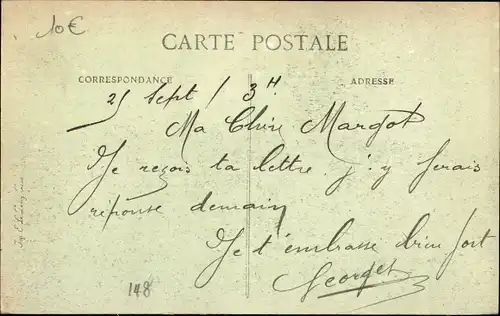 10€
CARTE POSTALE
CORRESPONDANCE
ADRESSE
25 Sept / 3H
Ma Chère Margot
Je reçois ta lettre j'y ferais
réponse demain
Je t'embrasse bien fort
Georges
148